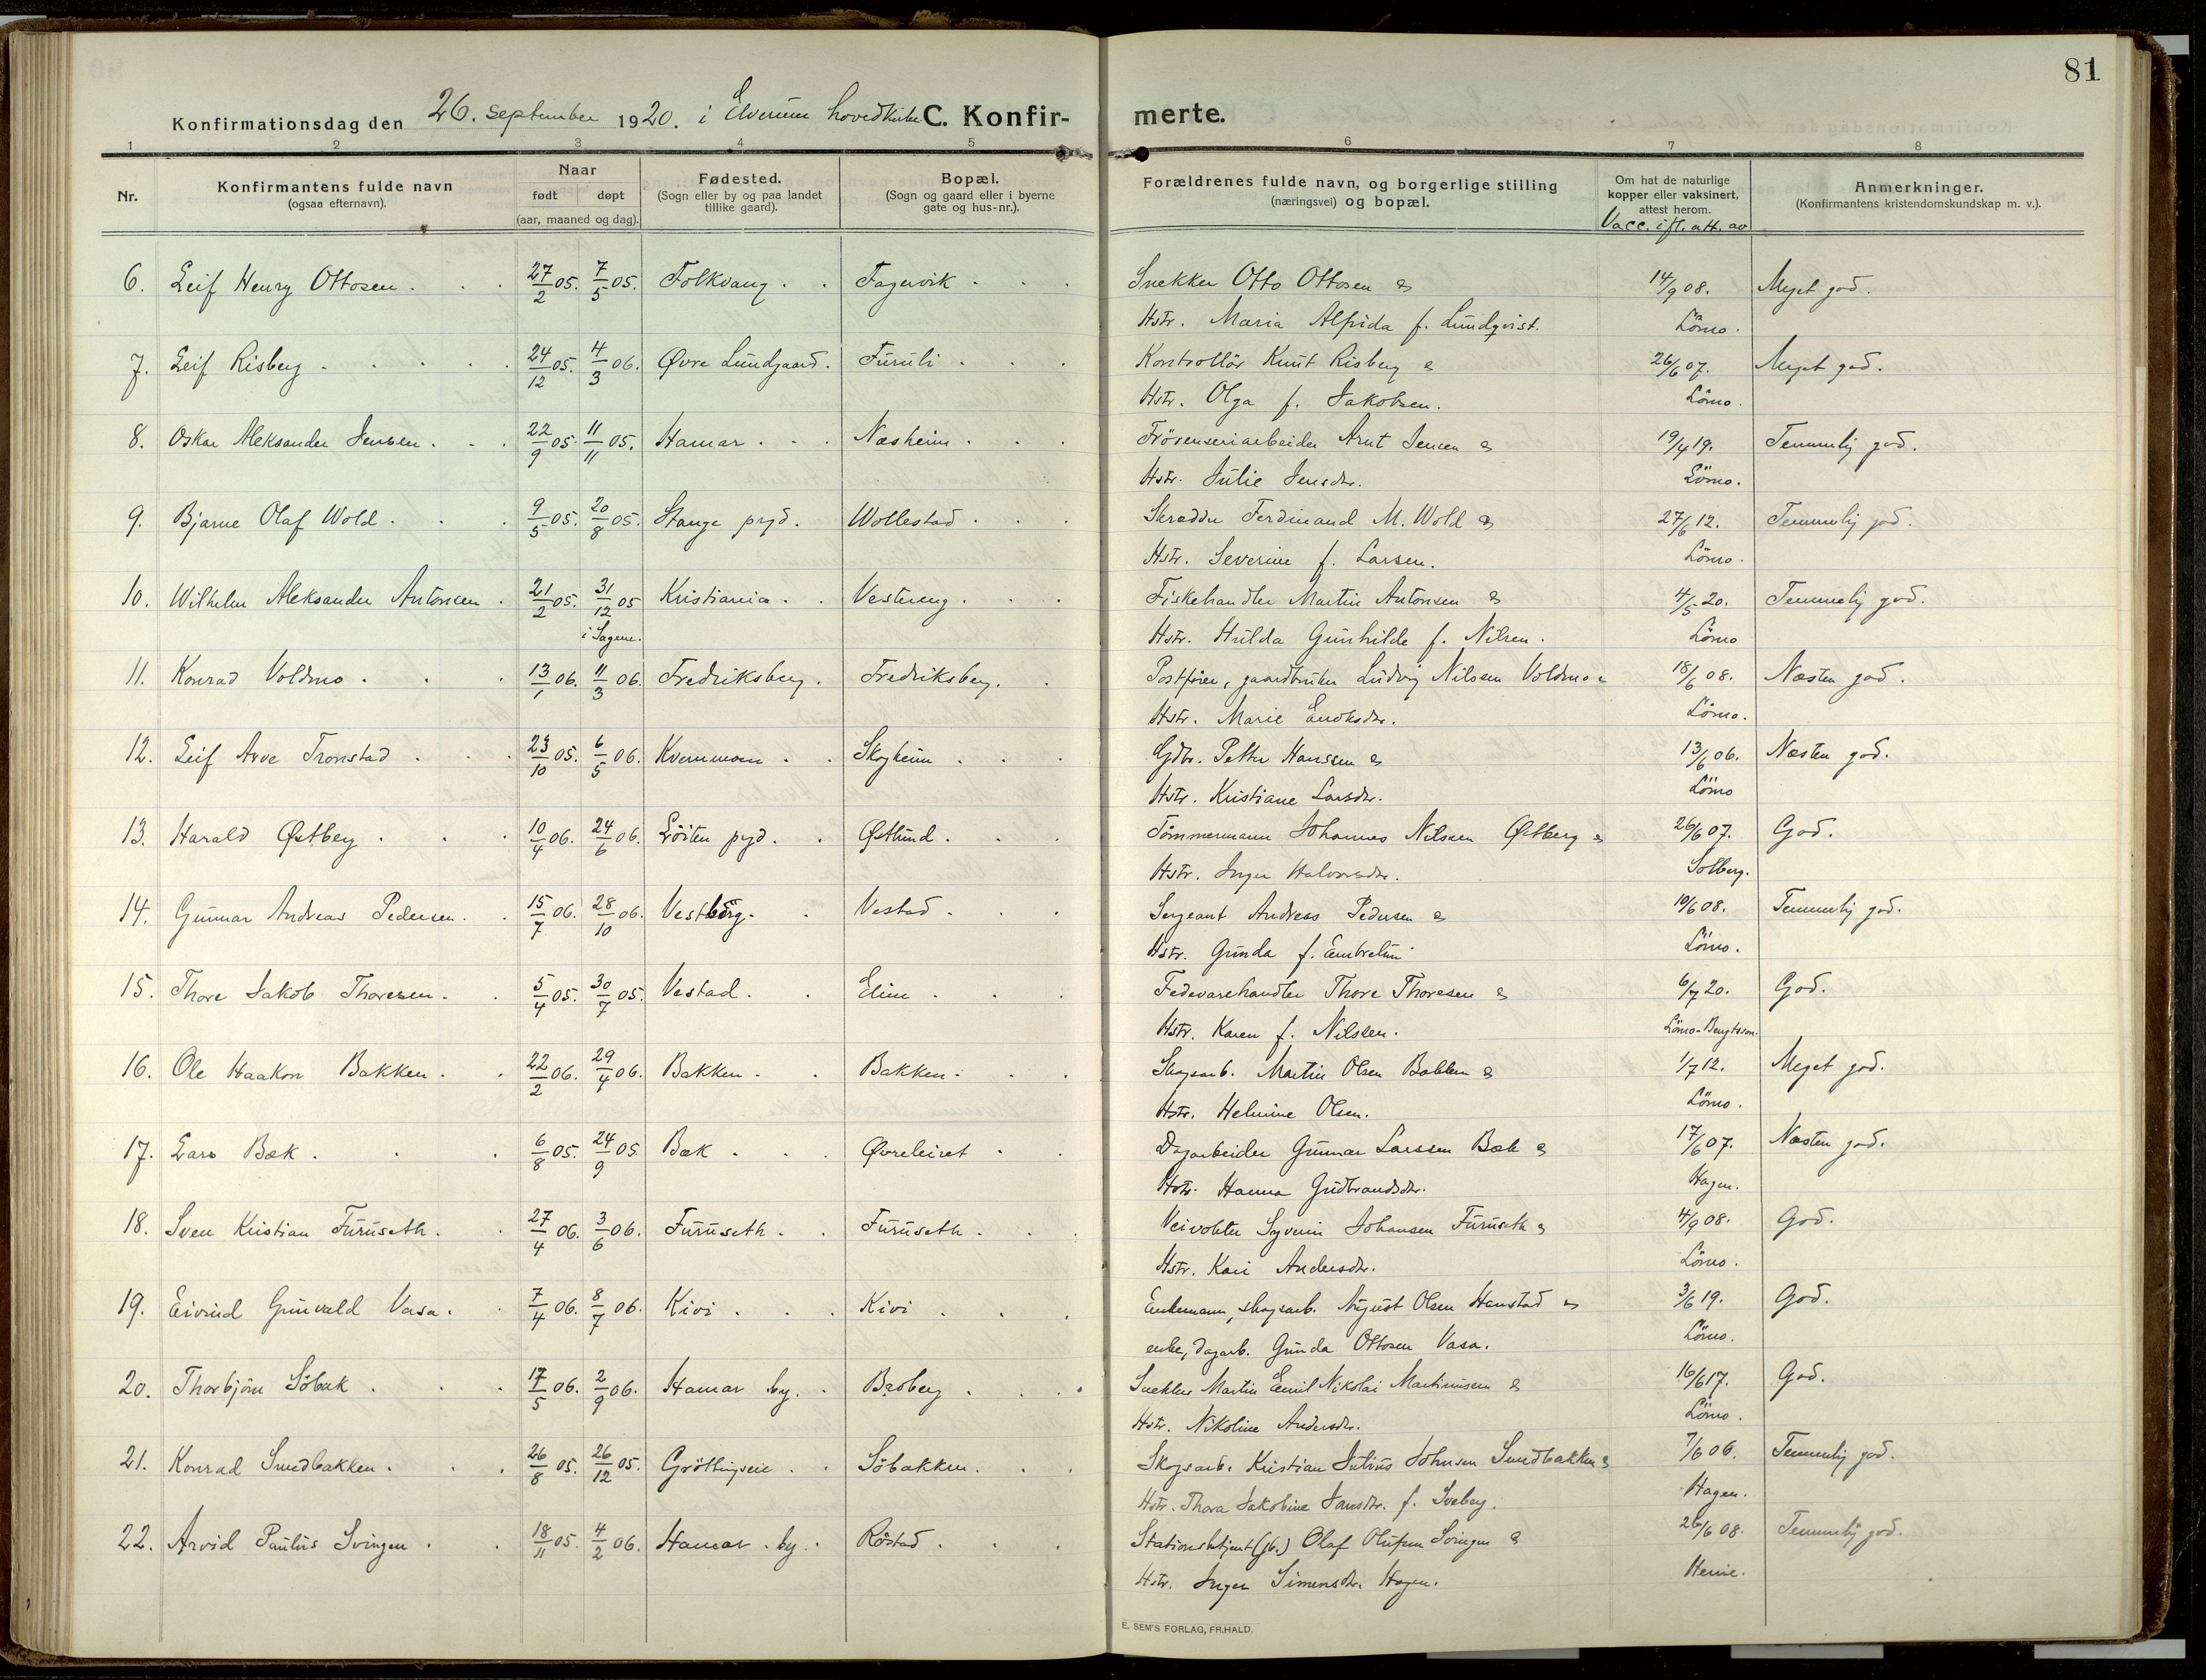 81
Konfirmationsdag den 26. september 1920. i Elverum hovedkirke C. Konfirmerte.
1 2 3 4 5 6 7 8
Nr.
Konfirmantens fulde navn
(ogsaa efternavn).
Naar
født døpt
(aar, maaned og dag).
Fødested.
(Sogn eller by og paa landet
tillike gaard).
Bopæl.
(Sogn og gaard eller i byerne
gate og hus-nr.).
Forældrenes fulde navn, og borgerlige stilling
(næringsvei) og bopæl.
Om hat de naturlige
kopper eller vaksinert,
attest herom.
Vacc. ifl. att. av
Anmerkninger.
(Konfirmantens kristendomskundskap m. v.).
6. Leif Henry Ottosen. 27/2 05. 7/5 05. Folkvang. Fagervik. Snekker Otto Ottosen & 14/9 08. Meget god.
Hstr. Maria Alfrida f. Lundqvist. Lömo.
7. Leif Risberg. 24/12 05. 4/3 06. Øvre Lundgaard. Furuli. Kontrollör Knut Risberg & 26/6 07. Meget god.
Hstr. Olga f. Jakobsen. Lömo.
8. Oskar Aleksander Jensen. 22/9 05. 11/11 05. Hamar. Næsheim. Frövenseriarbeider Arnt Jensen & 19/4 19. Temmelig god.
Hstr. Julie Jensdtr. Lömo.
9. Bjarne Olaf Wold. 9/5 05. 20/8 05. Stange prgd. Wollestad. Skrædder Ferdinand M. Wold & 27/6 12. Temmelig god.
Hstr. Severine f. Larsen. Lömo.
10. Wilhelm Aleksander Antonsen. 21/2 05. 31/12 05 Kristiania. Vestereng. Fiskehandler Martin Antonsen & 4/5 20. Temmelig god.
i Sagene. Hstr. Hulda Gunhilde f. Nilsen. Lömo
11. Konrad Voldmo. 13/1 06. 11/3 06. Fredriksberg. Fredriksberg. Postfører, gaardbruker Ludvig Nilssen Voldmo & 18/6 08. Næsten god.
Hstr. Marie Eriksdtr. Lömo.
12. Leif Arve Tronstad. 23/10 05. 6/5 06. Kvernmoen. Skogheim. Gdbr. Petter Hanssen & 13/6 06. Næsten god.
Hstr. Kristiane Larsdtr. Lömo
13. Harald Østberg. 10/4 06. 24/6 06. Löiten prgd. Østlund. Tömmermann Johannes Nilssen Østberg & 26/6 07. God.
Hstr. Inger Halvorsdtr. Solberg.
14. Gunnar Andreas Pedersen. 15/7 06. 28/10 06. Vestberg. Vestad. Sergeant Andreas Pedersen & 19/6 08. Temmelig god.
Hstr. Gunda f. Lömo.
15. Thore Jakob Thoresen. 5/4 05. 30/7 05. Vestad. Elim. Fedevarehandler Thore Thoresen & 6/7 20. God.
Hstr. Karen f. Nilssen. Lömo-Bengtsson.
16. Ole Haakon Bakken. 22/2 06. 29/4 06. Bakken. Bakken. Skogsarb. Martin Olsen Bakken & 1/7 12. Meget god.
Hstr. Helmine Olsen. Lömo.
17. Lars Bæk. 6/8 05. 24/9 05. Bæk. Øvreleiret. Dagarbeider Gunnar Larssen Bæk & 17/6 07. Næsten god.
Hstr. Hanna Gudbrandsdtr. Hagen.
18. Sven Kristian Furuseth. 27/4 06. 3/6 06. Furuseth. Furuseth. Veivokter Syverin Johansen Furuseth & 4/9 08. God.
Hstr. Kari Andersdtr. Lömo.
19. Eivind Gunvald Vasa. 7/4 06. 8/7 06. Kivi. Kivi. Enkemann, skogsarb. August Olsen Hanstad & 3/6 19. God.
enke, dagarb. Gunda Ottosen Vasa. Lömo.
20. Thorbjörn Söbak. 17/5 06. 2/9 06. Hamar by. Braberg. Snekker Martin Emil Nikolai Martinussen & 16/6 17. God.
Hstr. Nikoline Andersdtr. Lömo.
21. Konrad Smedbakken. 26/8 05. 26/12 05. Gröttingseie. Söbakken. Skogsarb. Kristian Julius Johnsen Smedbakken & 7/6 06. Temmelig god.
Hstr. Thora Jakobine Jansdtr. f. Sveberg. Hagen.
22. Arvid Paulus Svingen. 18/11 05. 4/2 06. Hamar by. Röstad. Stationsbetjent (jb.) Olaf Olufsen Svingen & 26/6 08. Temmelig god.
Hstr. Inger Simensdtr. Hagen.
E. SEM'S FORLAG, FR.HALD.